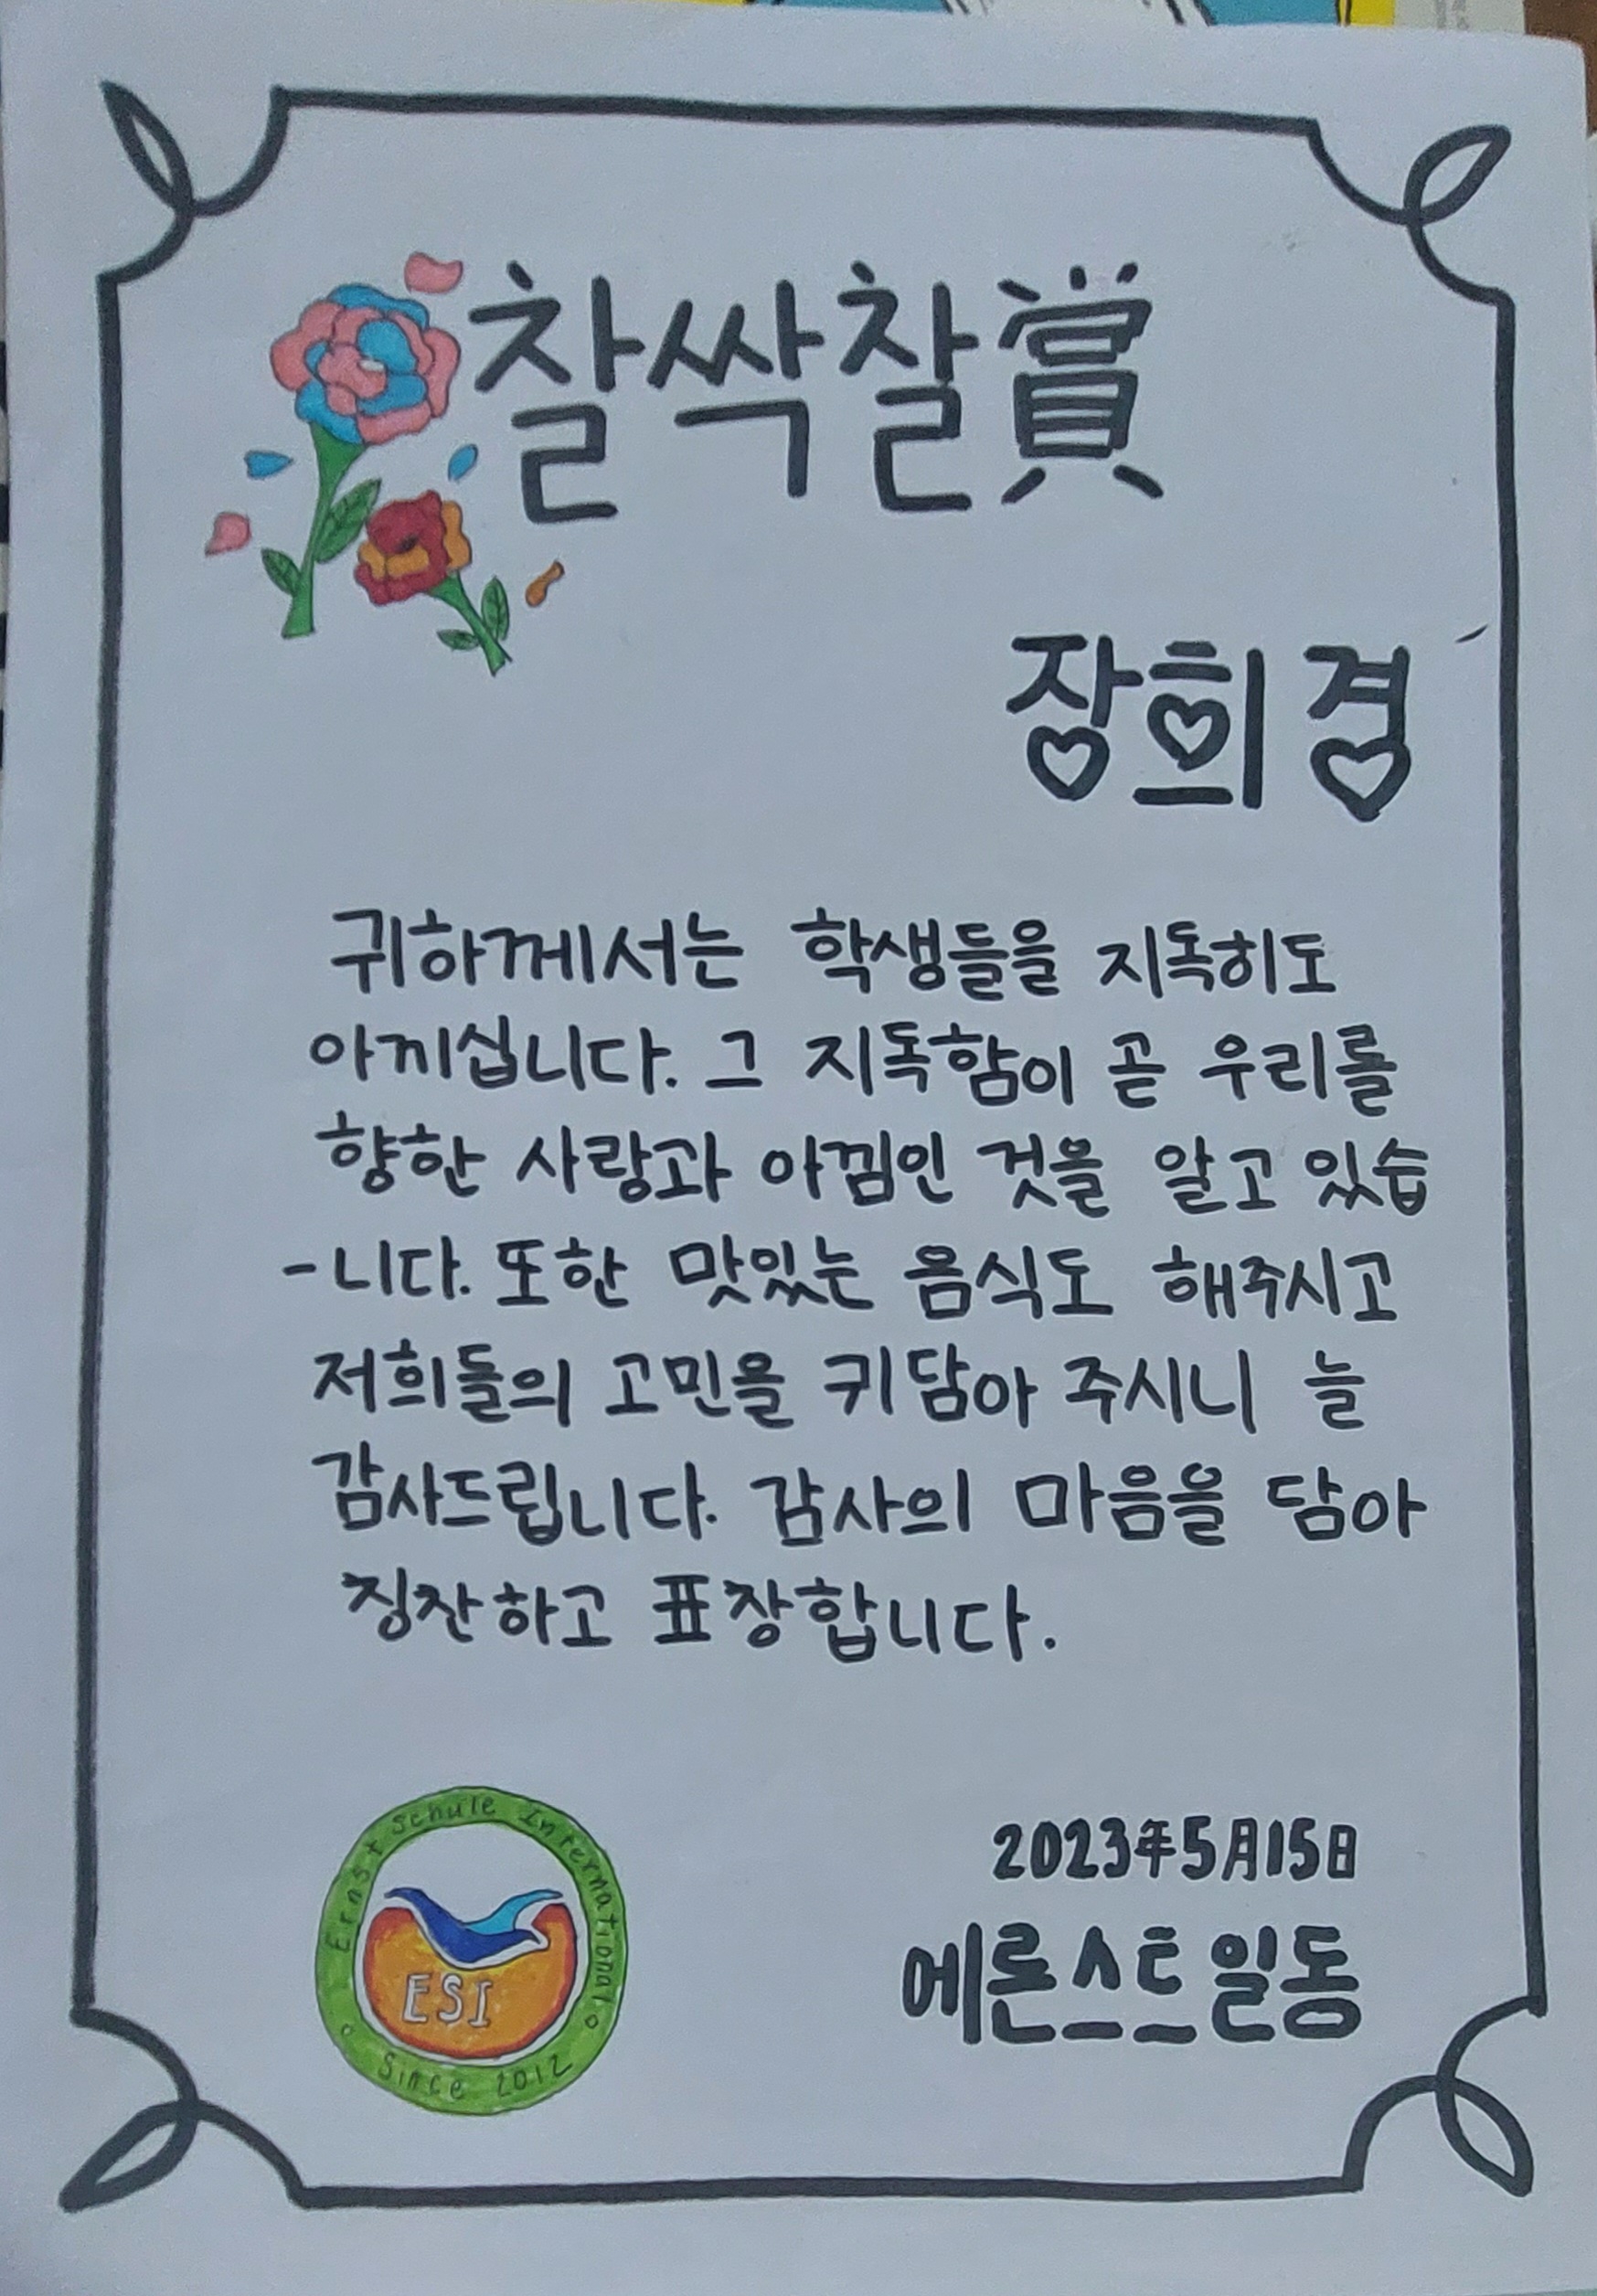 찰싹찰賞
장희경
귀하께서는 학생들을 지독히도
아끼십니다. 그 지독함이 곧 우리를
향한 사랑과 아낌인 것을 알고 있습
-니다. 또한 맛있는 음식도 해주시고
저희들의 고민을 귀담아 주시니 늘
감사드립니다. 감사의 마음을 담아
칭찬하고 표창합니다.
2023年5月15日
에론스트일동
Ernst Schule International
ESI
Since 2012